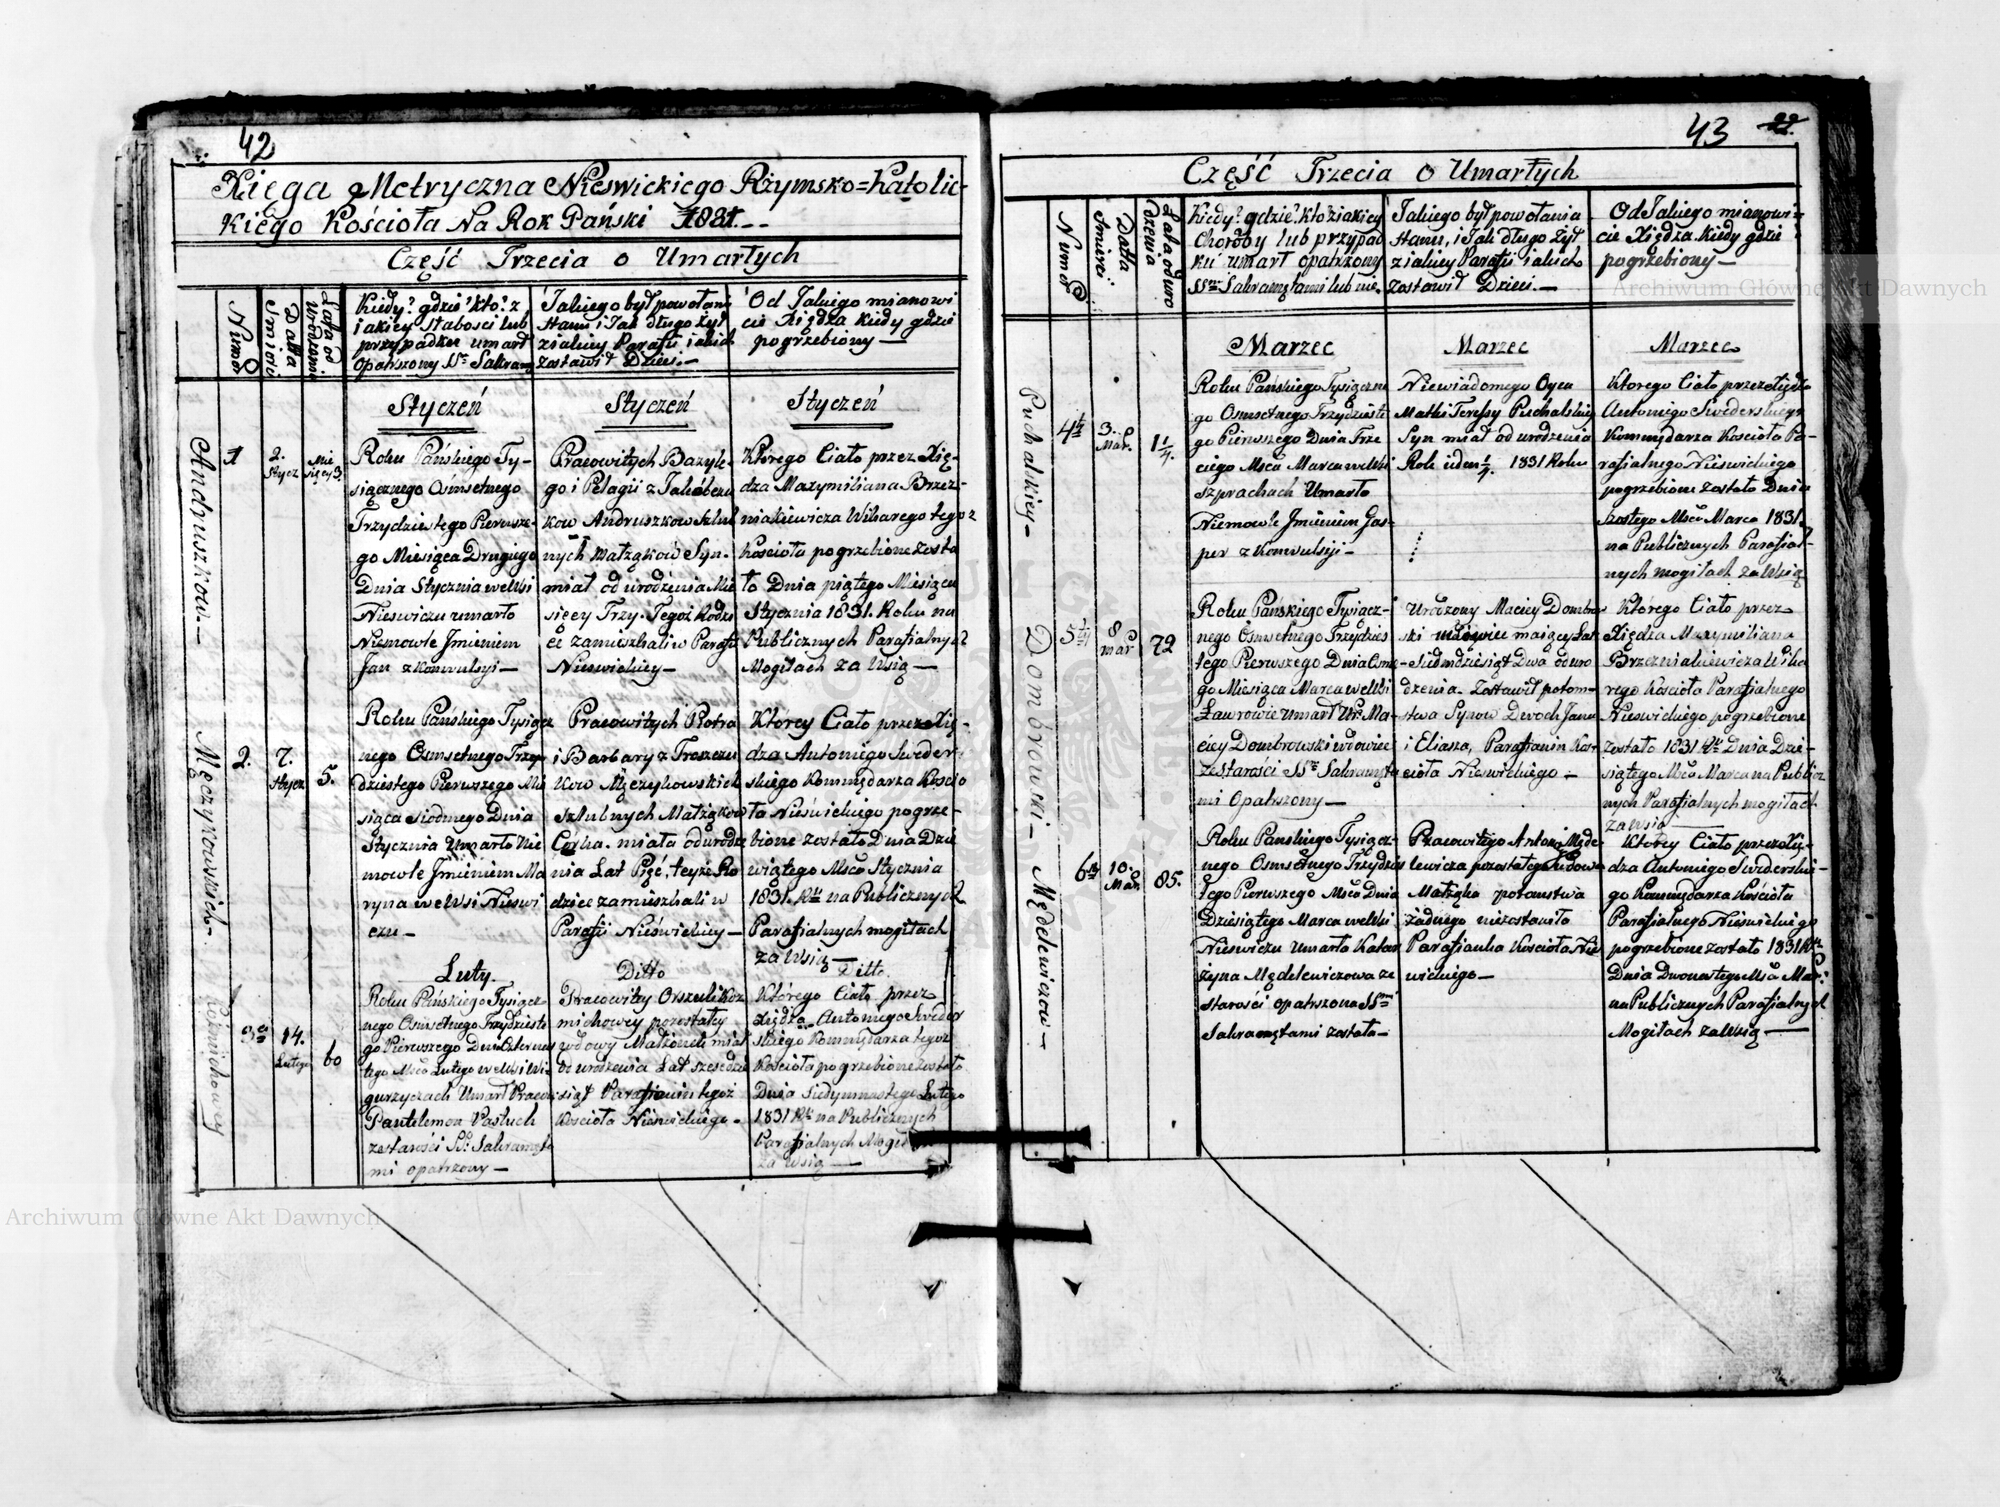 42
Xięga Metryczna Nieswickiego Rżymsko=Katolic-
kiego Kościoła Na Rok Pański 1831.--
Część Trzecia o Umarłych
Numer
Datta Smierci
Lata od Urodzenia
Kiedy? gdzie? kto? z
iakiey słabosci lub
przypadku umarł
Opatrzony SS. Sakram
Jakiego był powołania
Stanu i Jak długo żył
z iakiey Parafii i iakich
zostawił Dzieci.—
Od Jakiego mianowi
cie Xiędza kiedy gdzie
pogrzebiony—
Andruszkow.—
1
2. Stycz
Mie sięcy 3.
Styczeń
Roku Pańskiego Ty-
siącznego Osmsetnego
Trzydziestego Pierwsze-
go Miesiąca Drugiego
Dnia Stycznia we Wsi
Nieswiczu umarło
Niemowle Jmieniem
Jan z Konwulsyi—
Styczeń
Pracowitych Bazyle-
go i Pelagii z Jakóbcza
kow Andruszkow szlub
nych małżąków Syn.
miał od urodzenia Mie
sięcy Trzy. Tegoż Rodzi
ce zamieszkali w Parafii
Nieswickiey—
Styczeń
Którego Ciało przez Xię-
dza Maxymiliana Brzez-
niakiewicza Wikarego tegoż
Kościoła pogrzebione zosta
ło Dnia piątego Miesiąca
Stycznia 1831. Roku na
Publicznych Parafialnych
Mogiłach za Wsią—
Męczykowskich—
2.
7. Stycz
5.
Roku Pańskiego Tysiącz
nego Osmsetnego Trzy-
dziestego Pierwszego Mie
siąca siódmego Dnia
Stycznia Umarło Nie
mowle Jmieniem Ma
ryna we Wsi Nieswi
czu—
Pracowitych Piotra
i Barbary z Troszczu
kow Męczykowskich
szlubnych Małżąkow
Córka. miała od urodze
nia Lat Pięć, teyże Ro
dzice zamieszkali w
Parafii Nieświckiey—
Którey Ciało przez Xię-
dza Antoniego Swider-
skiego Kommędarza Koscio
ła Nieświckiego pogrze-
bione zostało Dnia Dzie
wiątego Msca Stycznia
1831. Rku na Publicznych
Parafialnych mogiłach
za Wsią—
Koźmichowey
3
14. Lutego
60
Luty
Roku Pańskiego Tysiącz
nego Osmsetnego Trzydzieste
go Pierwszego Dnia Czternas
tego Msca Lutego we Wsi Wi
gurzyczach Umarł Pracowi
Pantelemon Pastuch
ze starości SS. Sakramęta
mi opatrzony—
Ditto
Pracowity Orszuli Koź
michowey pozostałey
wdowy Małżonek miał
od urodzenia Lat szescdzie
siąt Parafianin tegoż
Kościoła Nieświckiego.
Ditto
Którego Ciało przez
Xiędza Antoniego Swider
skiego Kommędarza tegoż
Kościoła pogrzebione zostało
Dnia Siedymnastego Lutego
1831 Rku na Publicznych
Parafialnych Mogiłach
za Wsią—
43
22.
Część Trzecia o Umarłych
Numer
Datta Smierci
Lata od uro dzenia
Kiedy? gdzie? kto? z iakiey
Choroby lub przypad
ku umarł opatrzony
SS. Sakramętami lub nie.
Jakiego był powołania
Stanu, i Jak długo żył
z iakiey Parafii iakich
zostawił Dzieci.—
Od Jakiego mianowi=
cie Xiędza kiedy gdzie
pogrzebiony—
Puchalskiey—
4ty
3. Mar.
1 1/4.
Marzec
Roku Pańskiego Tysiączne
go Osmsetnego Trzydzieste
go Pierwszego Dnia Trze
ciego Msca Marca we Wsi
Szprachach Umarło
Niemowle Jmieniem Gas-
per z Konwulsyi—
Marzec
Niewiadomego Oyca
Matki Teressy Puchalskiey
Syn miał od urodzenia
Rok ieden 1/4. 1831 Roku
Marzec
Ktorego Ciało przez Xiędza
Antoniego Swiderskiego
Kommędarza Kościoła Pa-
rafialnego Nieswickiego
pogrzebione zostało Dnia
szostego Msca Marca 1831.
na Publicznych Parafial-
nych mogiłach za Wsią
Dombrowski—
5ty
8 mar
72
Roku Pańskiego Tysiącz-
nego Osmsetnego Trzydzies
tego Pierwszego Dnia Osme-
go Miesiąca Marca we Wsi
Ławrowie umarł Ur. Ma-
ciey Dombrowski wdowiec
ze starości SS. Sakramęta
mi Opatrzony—
Urodzony Maciey Dombro-
ski wdowiec maiący Lat
Siedmdziesiąt Dwa od uro
dzenia. Zostawił potom-
stwa Synow Dwoch Jana
i Eliasza, Parafianin Kos-
cioła Nieswickiego—
Którego Ciało przez
Xiędza Maxymiliana
Brzezniakiewicza Wika
rego Kościoła Parafialnego
Nieswickiego pogrzebione
zostało 1831 Rku Dnia Dzie-
siątego Msca Marca na Publicz
nych Parafialnych mogiłach
za Wsią—
Mędelewiczow—
6ty
10. Mar.
85.
Roku Panskiego Tysiącz-
nego Osmsetnego Trzydzies
tego Pierwszego Msca Dnia
Dziesiątego Marca we Wsi
Nieswiczu Umarła Katar
żyna Mędelewiczowa ze
starości opatrzona SS.
Sakramętami została—
Pracowitego Antoni Męde-
lewicza pozostałego wdowca
Małżąka potomstwa
żadnego niezostawiła
Parafianka Kościoła Nies
wickiego—
Którey Ciało przez Xię-
dza Antoniego Swiderskie-
go Kommędarza Kościoła
Parafialnego Nieświckiego
pogrzebione zostało 1831 Rku
Dnia Dwonastego Msca Mar.
na Publicznych Parafialnych
Mogiłach za Wsią—
Archiwum Główne Akt Dawnych
Archiwum Główne Akt Dawnych